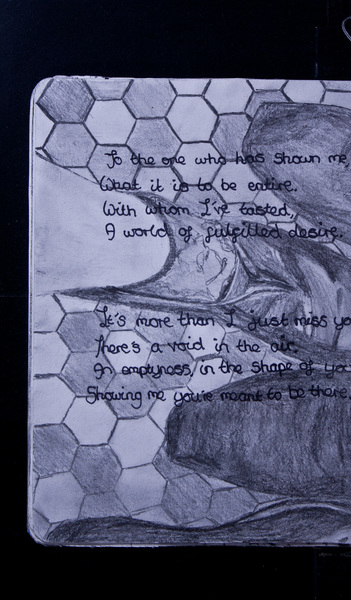 To the one who has shown me,
What it is to be entire.
With whom I've tasted,
A world of fulfilled desire.
It's more than I just miss yo
There's a void in the air.
An emptyness, in the shape of yo
Showing me you're meant to be there.